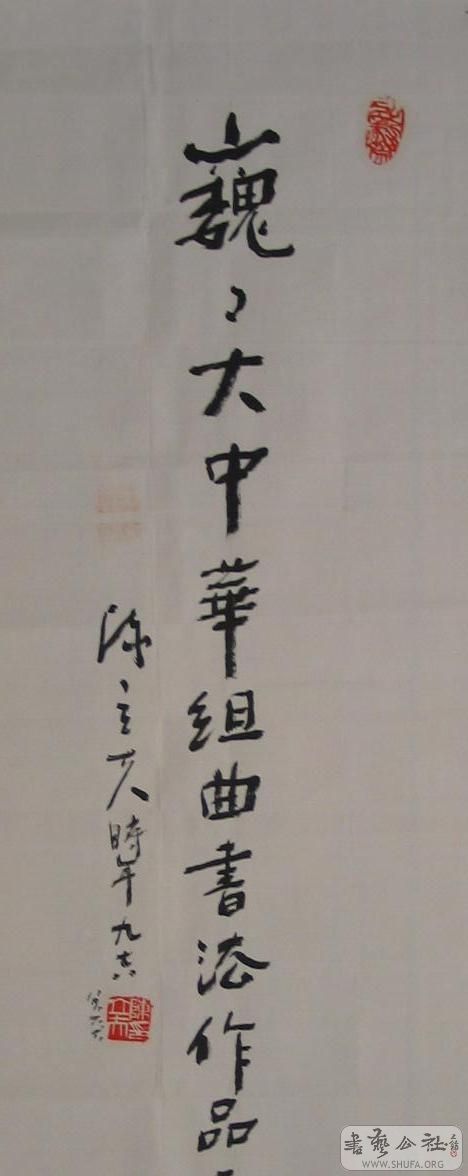 巍々大中華組曲書法作品
陳立夫時年九十六
書藝公社
WWW.SHUFA.ORG